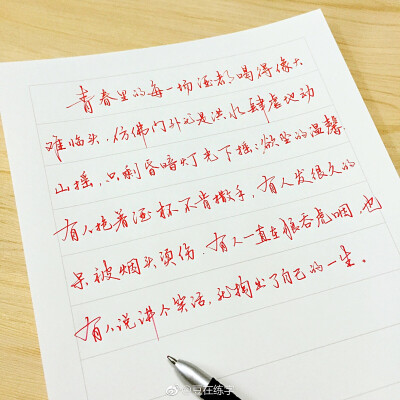 青春里的每一场酒都喝得像大
难临头,仿佛门外就是洪水肆虐地动
山摇,只剩昏暗灯光下摇摇欲坠的温馨,
有人挽着酒杯不肯撒手,有人发很久的
呆被烟头烫伤,有人一直在狼吞虎咽,也
有人说讲个笑话,却掏出了自己的一生。
豆在练字